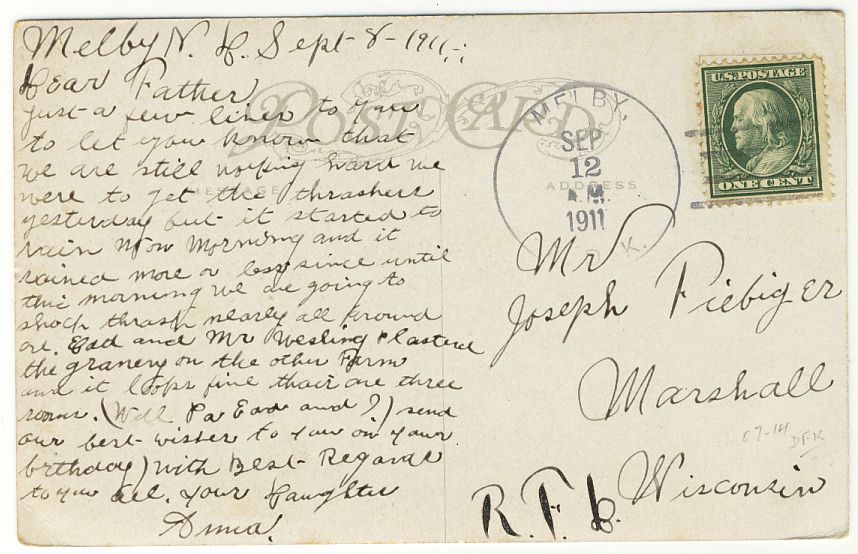 Melby N. D. Sept-8-1911
Dear Father
just a few lines to you
to let you know that
we are still working hard we
were to get the thrashers
yesterday but it started to
rain Mon Morning and it
rained more or less since until
this morning we are going to
shock thrash nearly all around
are. and Mr plastered
the granery on the other Farm
and it looks fine thair are three
rooms. (Well Pa and I) send
our best wishes to you on your
birthday) with Best Regards
to you all. your Daughter
Anna.
POST CARD
MESSAGE
ADDRESS
MELBY,
SEP
12
A.M.
1911
U.S. POSTAGE
ONE CENT
Mr
Joseph Fiebiger
Marshall
Wisconsin
R. F. D.
07-14
DFK